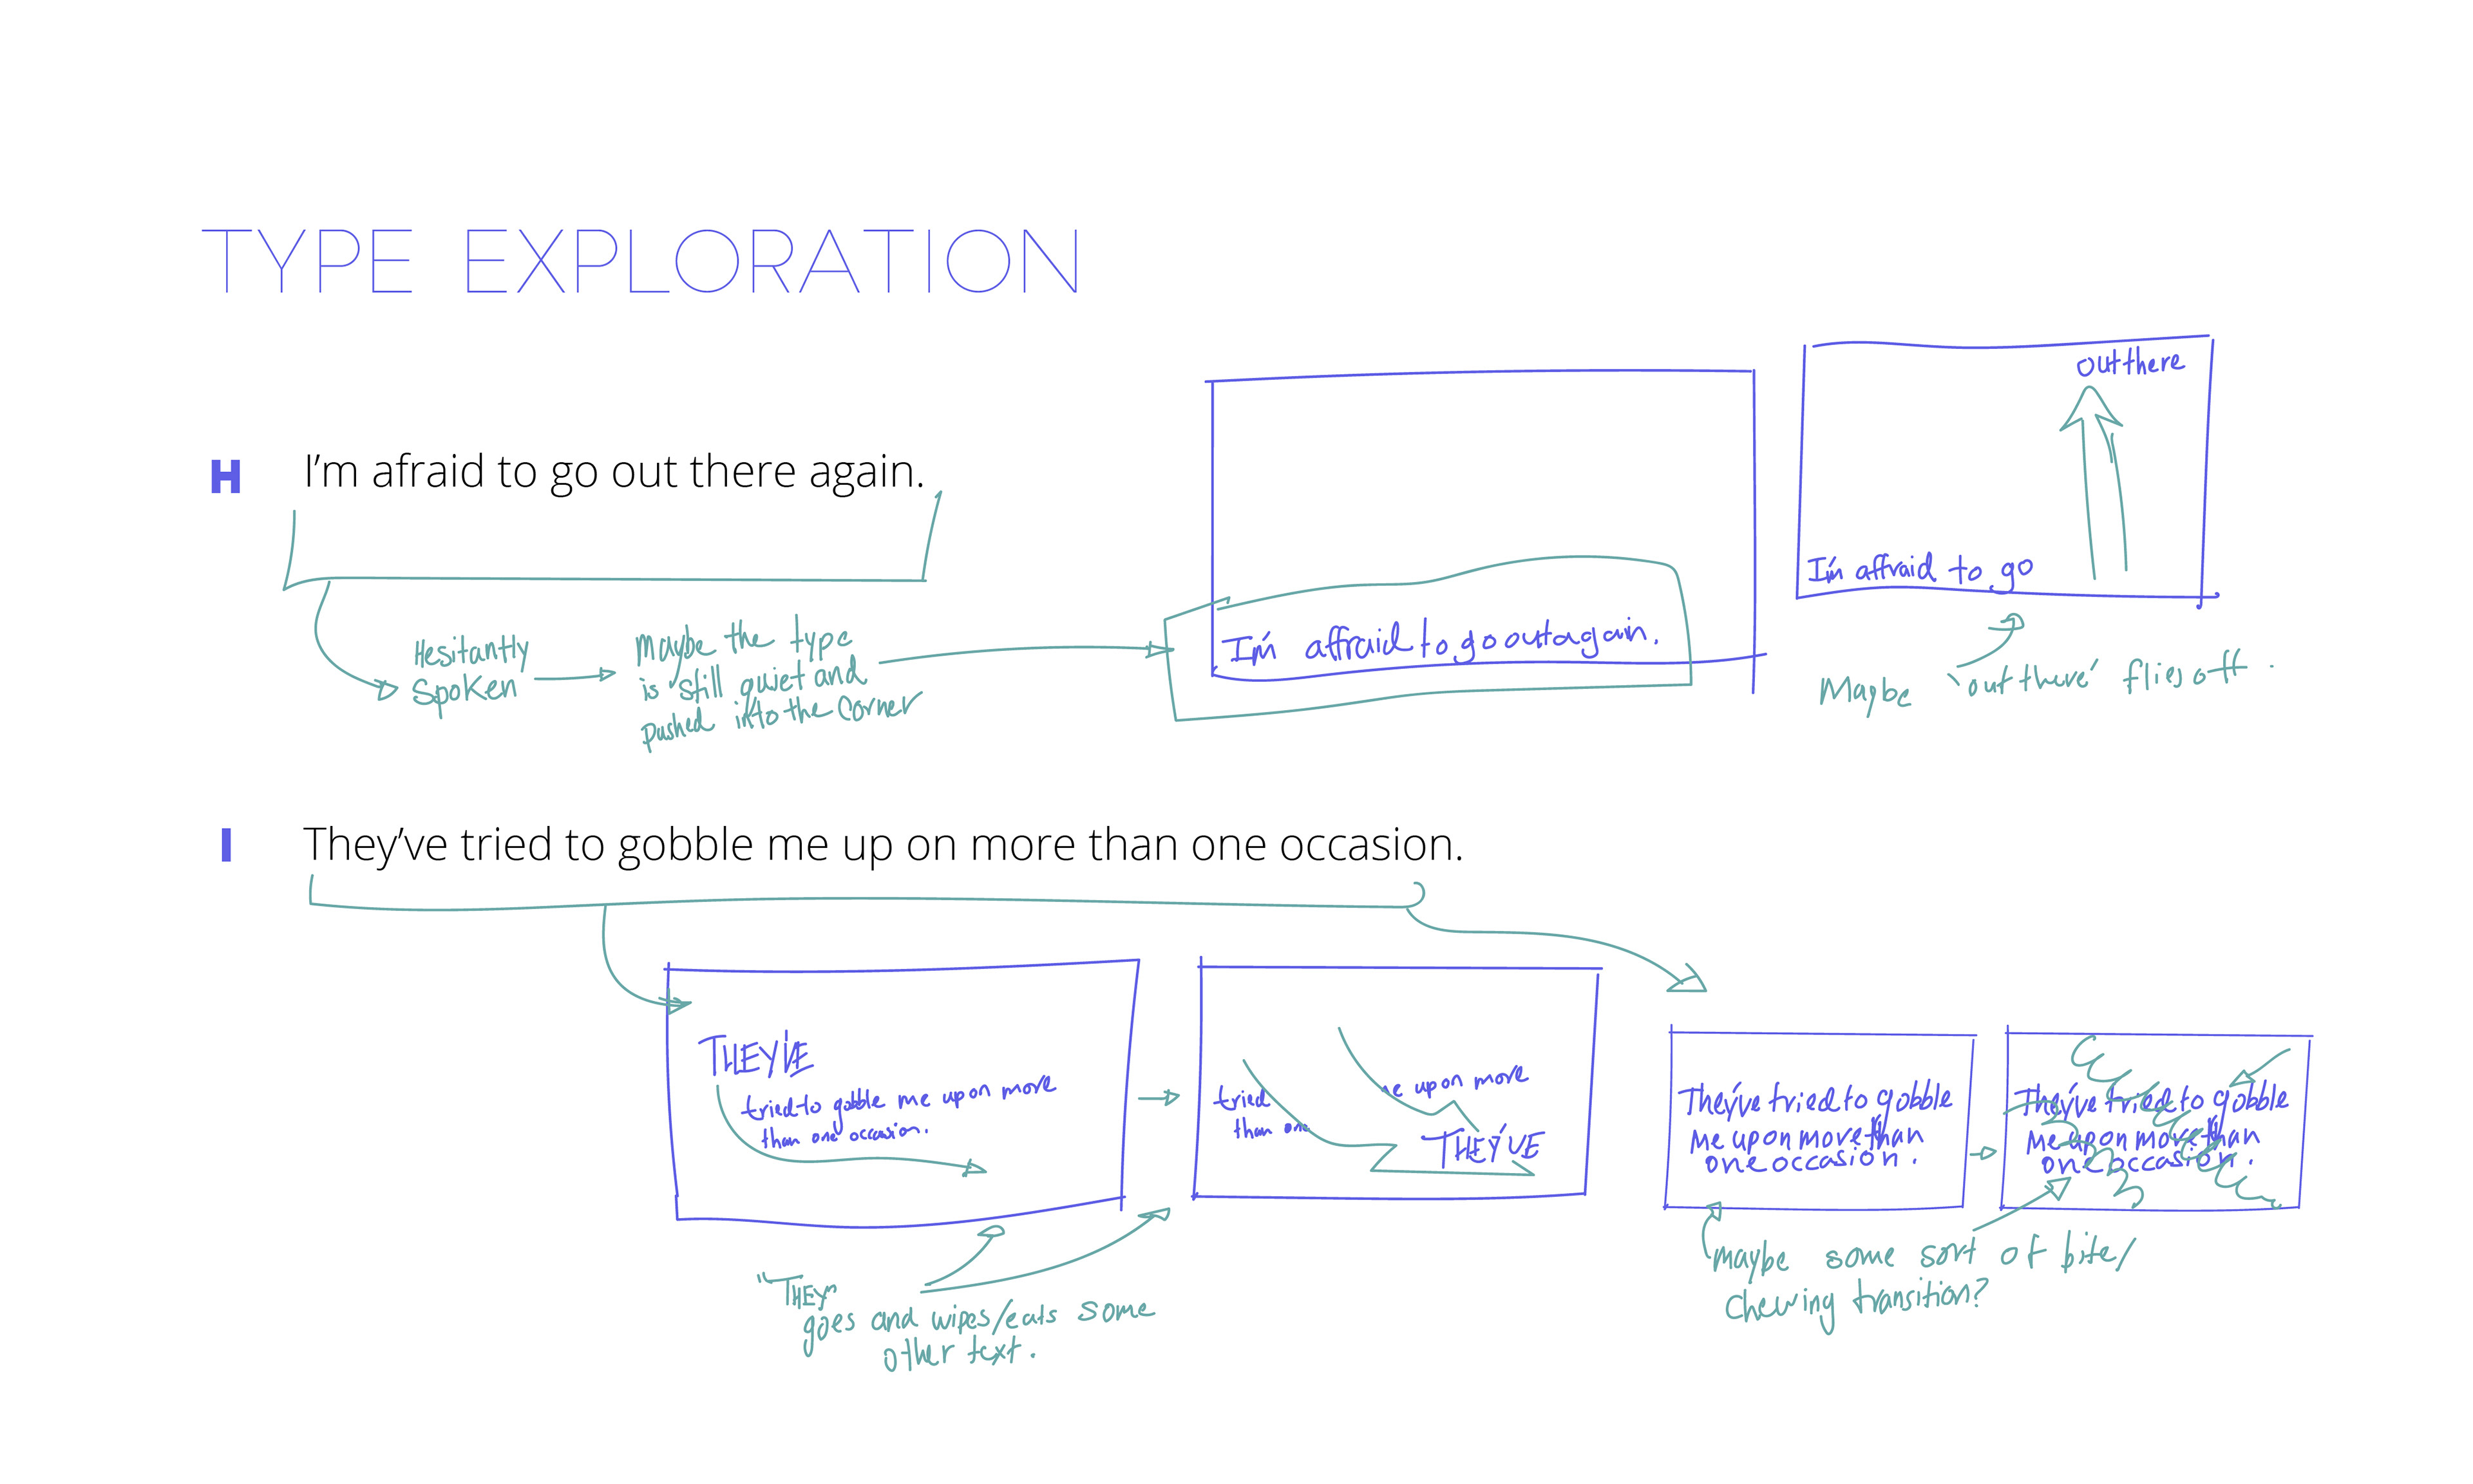 TYPE EXPLORATION
H I'm afraid to go out there again.
Hesitantly
spoken
Maybe the type
is still quiet and
pushed into the corner
I'm affraid to go out again.
out there
I'm affraid to go
Maybe 'out there' flies off.
I They've tried to gobble me up on more than one occasion.
THEY'VE
tried to gobble me up on more
than one occasion.
tried e up on more
than one
THEY'VE
They've tried to gobble
me up on more than
one occasion.
They've tried to gobble
me up on more than
one occasion.
"THEY"
goes and wipes/eats some
other text.
maybe some sort of bite/
chewing transition?